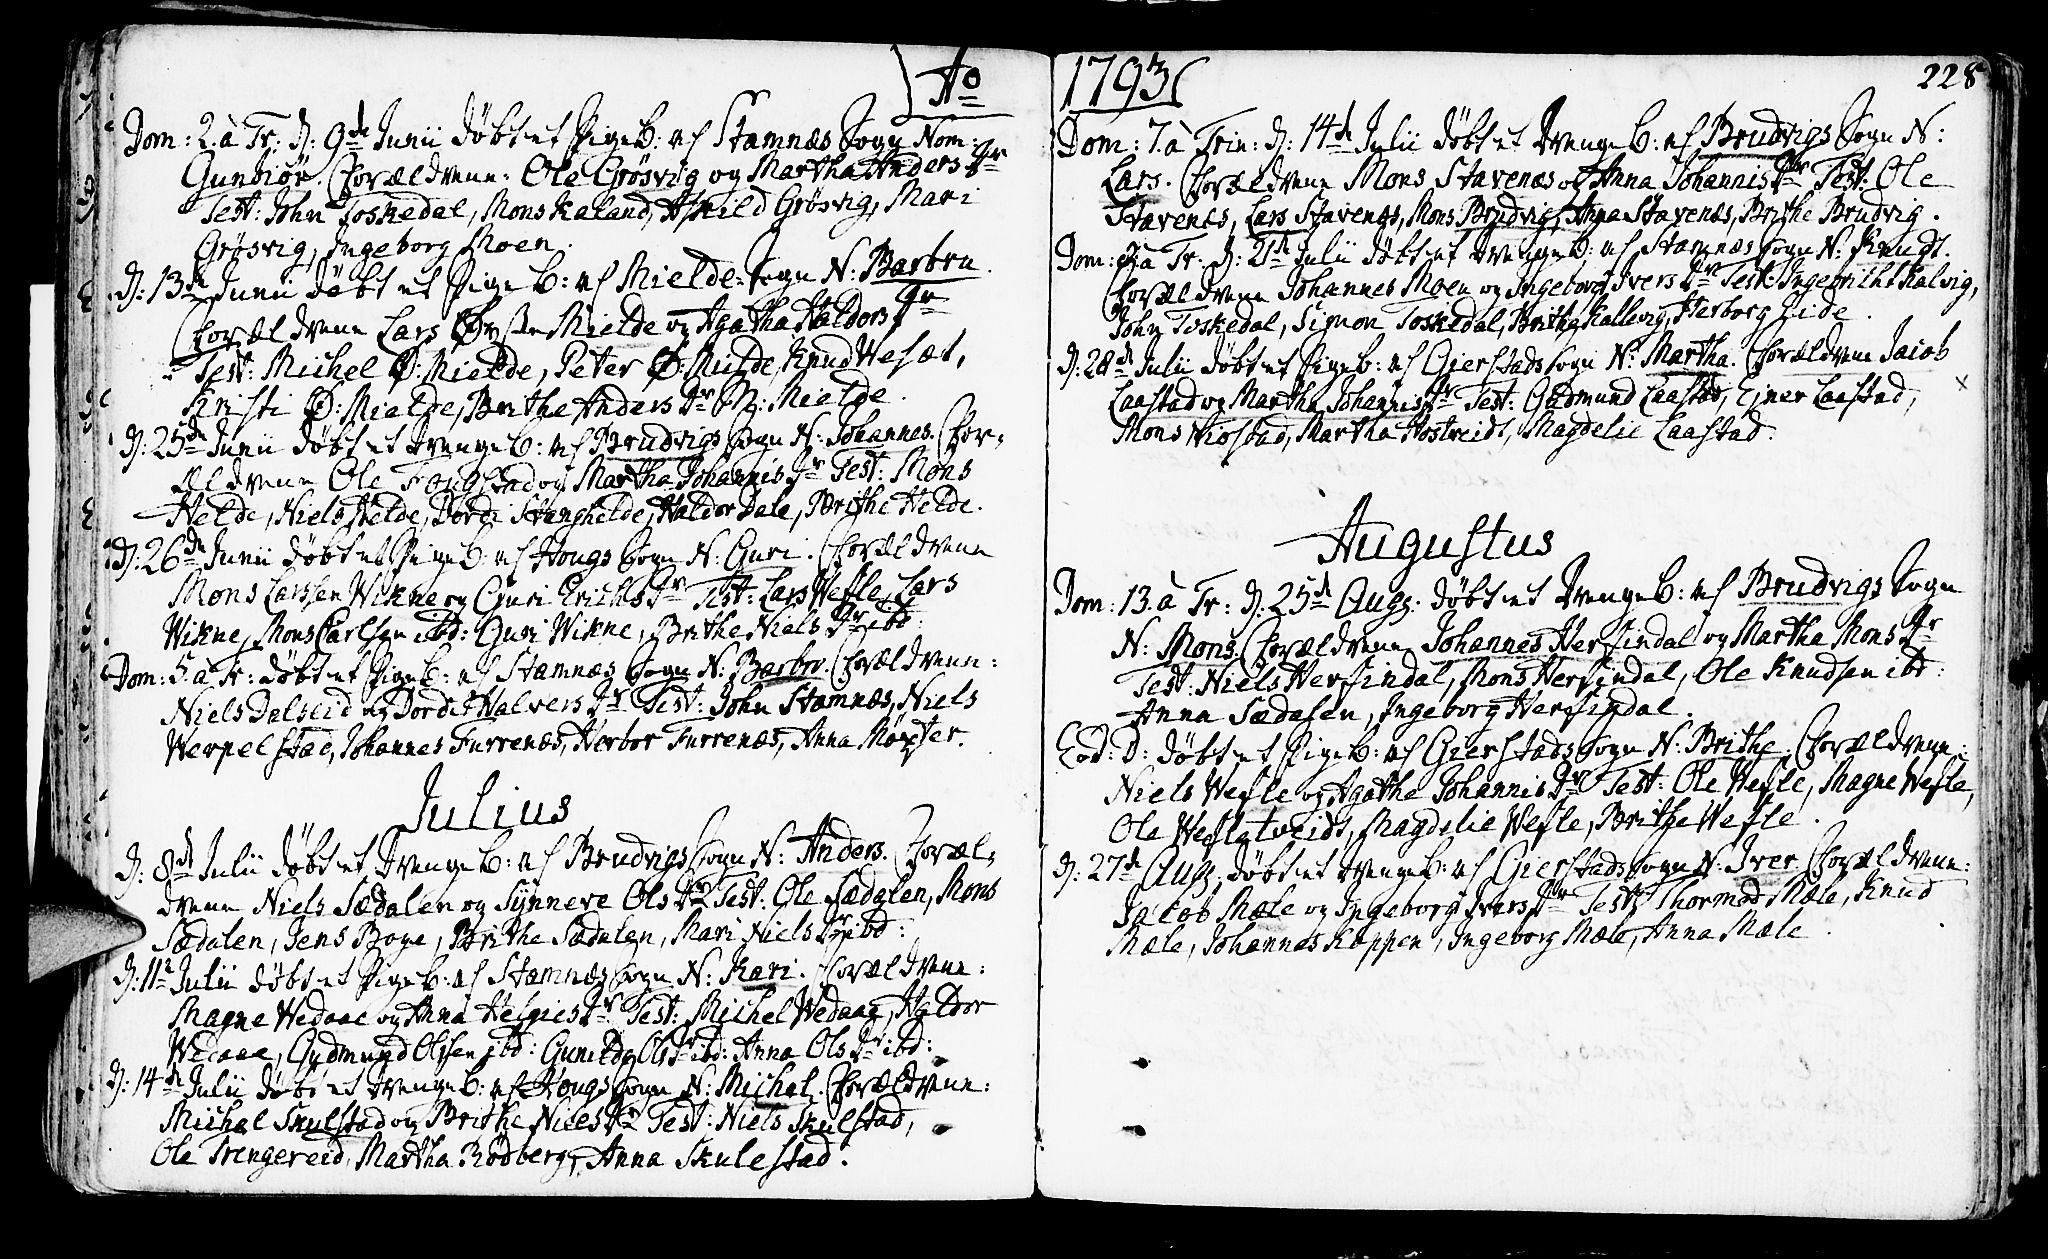 Ao
Dom: 2. à Tr: D: 9de Junii döbt et Pigeb: af Stamnæs Sogn Nom:
Gunbiör. Forældrene: Ole Grösvig og Martha Anders Dr
Test: John Toskedal, Mons Kaland, Askild Grösvig, Mari
Grösvig, Ingeborg Moen.
D: 13de Junii döbt et Pigeb: af Mielde-Sogn N: Barbru.
Forældrene Lars Mielde og Agatha Haldors Dr
Test: Michel Ø: Mielde, Peter Ø: Mielde, Knud Wesæt,
Kristi Ø: Mielde, Brithe Anders Dr M: Mielde.
D: 25de Junii döbt et Drengeb: af Brudvigs Sogn N: Johannes. For-
ældrene Ole Fougstad og Martha Johannis Dr Test: Mons
Helde, Niels Helde, Dordi Stanghelde, Haldor Dale, Brithe Helde.
D: 26de Junii döbt et Pigeb: af Hougs Sogn N: Guri. Forældrene
Mons Larssen Wikne og Guri Erichs Dr Test: Lars Wefle, Lars
Wikne, Mons Carlsen ibd: Guri Wikne, Brithe Niels Dr ibd:
Dom: 5. à Tr: döbt et Pigeb: af Stamnæs Sogn N: Barbor. Forældrene:
Niels Dalseid og Dordet Halvers Dr Test: John Stamnæs, Niels
Werpelstad, Johannes Furrenæs, Herbor Furrenæs, Anna Møster.
Julius
D: 8de Julii döbt et Drengeb: af Brudvigs Sogn N: Anders. Foræl-
drene Niels Sædalen og Synneve Ols Dr Test: Ole Sædalen, Mons
Sædalen, Jens Boge, Brithe Sædalen, Mari Niels Dr ibd:
D: 11te Julii döbt et Pigeb: af Stamnæs Sogn N: Kari. Forældrene:
Magne Wedaae og Anna Helgies Dr Test: Michel Wedaae, Haldor
Wedaae, Gudmund Olssen ibd: Gunilde Ols Dr ibd: Anna Ols Dr ibd:
D: 14de Julii döbt et Drengeb: af Hougs Sogn N: Michel. Forældrene:
Michel Skulstad og Brithe Niels Dr Test: Niels Skulstad,
Ole Trengereid, Martha Rödberg, Anna Skulestad.
1793
228
Dom: 7. à Trin: D: 14de Julii döbt et Drengeb: af Brudvigs Sogn N:
Lars. Forældrene Mons Stavenæs og Anna Johannis Dr Test: Ole
Stavenæs, Lars Stavenæs, Mons Brudvig, Anna Stavenæs, Brithe Brudvig.
Dom: 8. à Tr: D: 21de Julii döbt et Drengeb: af Stamnæs Sogn N: Knudt.
Forældrene Johannes Moen og Ingeborg Ivers Dr Test: Ingebricht Kalvig,
John Toskedal, Simon Toskedal, Britha Kallevig, Herborg Eide.
D: 28de Julii döbt et Pigeb: af Gierstads Sogn N: Martha. Forældrene Jacob
Laastad og Martha Johannis Dr Test: Gudmund Laastad, Ejner Laastad,
Mons Miøstad, Martha Hostveidt, Magdelie Laastad.
Augustus
Dom: 13. à Tr: D: 25de Aug: döbt et Drengeb: af Brudvigs Sogn
N: Mons. Forældrene Johannes Hersindal og Martha Mons Dr
Test: Niels Hersindal, Mons Hersindal, Ole Knudsen ibd:
Anna Sædalen, Ingeborg Hersindal.
Eod: D: döbt et Pigeb: af Gierstads Sogn N: Brithe. Forældrene:
Niels Wefle og Agathe Johannis Dr Test: Ole Wefle, Magne Wefle,
Ole Weflatveidt, Magdelie Wefle, Brithe Wefle.
D: 27de Aug: döbt et Drengeb: af Gierstads Sogn N: Iver. Forældrene:
Jacob Mæle og Ingeborg Ivers Dr Test: Thormod Mæle, Knud
Mæle, Johannes Kappen, Ingeborg Mæle, Anna Mæle.